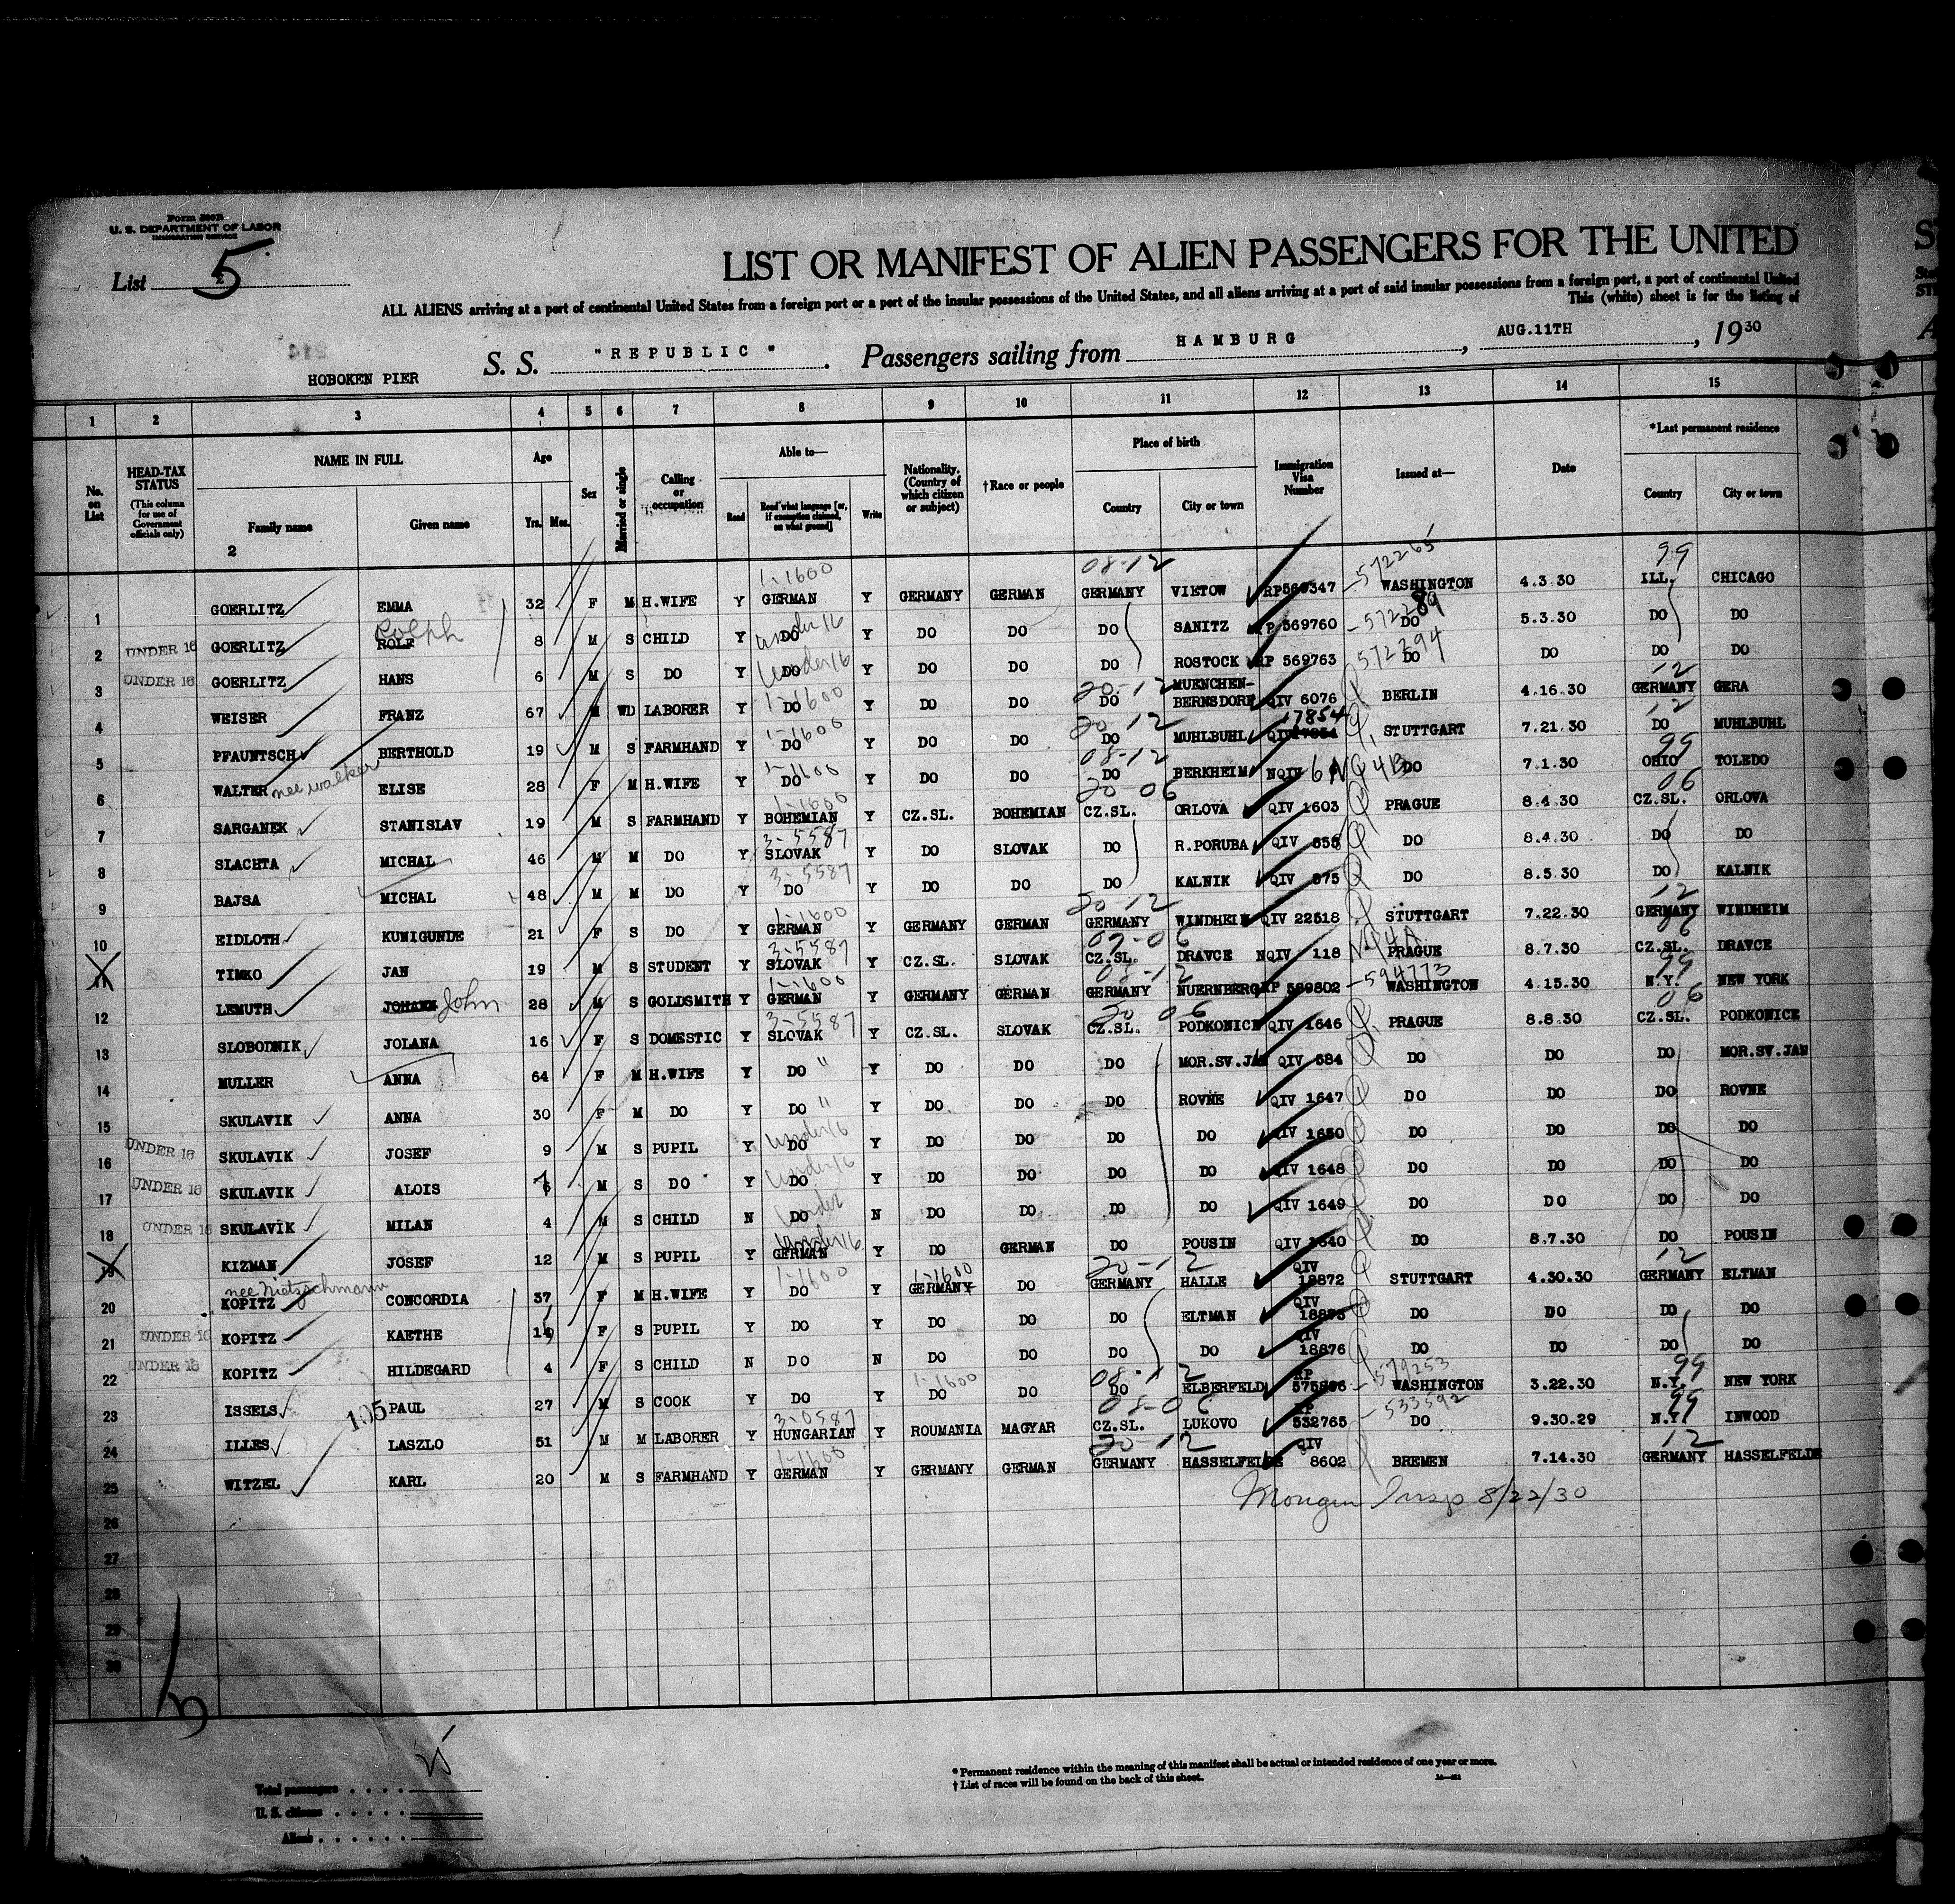 Form 500B
U. S. DEPARTMENT OF LABOR
IMMIGRATION SERVICE
List 5
LIST OR MANIFEST OF ALIEN PASSENGERS FOR THE UNITED
ALL ALIENS arriving at a port of continental United States from a foreign port or a port of the insular possessions of the United States, and all aliens arriving at a port of said insular possessions from a foreign port, a port of continental United
This (white) sheet is for the listing of
HOBOKEN PIER S. S. "REPUBLIC". Passengers sailing from HAMBURG, AUG.11TH, 1930
1 2 3 4 5 6 7 8 9 10 11 12 13 14 15
No. on List
HEAD-TAX STATUS (This column for use of Government officials only)
NAME IN FULL Family name Given name
2
Age Yrs. Mos.
Sex
Married or single
Calling or occupation
Able to— Read Read what language [or, if exemption claimed, on what ground] Write
Nationality. (Country of which citizen or subject)
†Race or people
Place of birth Country City or town
Immigration Visa Number
Issued at—
Date
*Last permanent residence Country City or town
1 GOERLITZ EMMA 32 F M H.WIFE Y 1-1600 GERMAN Y GERMANY GERMAN 08-12 GERMANY VIETOW RP569347 -572265 WASHINGTON 4.3.30 99 ILL. CHICAGO
2 UNDER 16 GOERLITZ ROLF Rolph 8 M S CHILD Y under 16 DO Y DO DO DO SANITZ RP 569760 -572289 DO 5.3.30 DO DO
3 UNDER 16 GOERLITZ HANS 6 M S DO Y under 16 DO Y DO DO DO ROSTOCK RP 569763 572294 DO DO DO DO
4 WEISER FRANZ 67 M WD LABORER Y 1-1600 DO Y DO DO 20-12 DO MUENCHEN-BERNSDORF QIV 6076 BERLIN 4.16.30 12 GERMANY GERA
5 PFAUNTSCH BERTHOLD 19 M S FARMHAND Y 1-1600 DO Y DO DO 20 12 DO MUHLBUHL QIV 17854 STUTTGART 7.21.30 12 DO MUHLBUHL
6 WALTER nee walker ELISE 28 F M H.WIFE Y 1-1600 DO Y DO DO 08-12 DO BERKHEIM NQIV 6 NQ4B DO 7.1.30 99 OHIO TOLEDO
7 SARGANEK STANISLAV 19 M S FARMHAND Y 1-1600 BOHEMIAN Y CZ.SL. BOHEMIAN 20-06 CZ.SL. ORLOVA QIV 1603 PRAGUE 8.4.30 06 CZ.SL. ORLOVA
8 SLACHTA MICHAL 46 M M DO Y 3-5587 SLOVAK Y DO SLOVAK DO R.PORUBA QIV 555 DO 8.4.30 DO DO
9 BAJSA MICHAL 48 M M DO Y 3-5587 DO Y DO DO DO KALNIK QIV 575 DO 8.5.30 DO KALNIK
10 EIDLOTH KUNIGUNDE 21 F S DO Y 1-1600 GERMAN Y GERMANY GERMAN 20-12 GERMANY WINDHEIM QIV 22518 STUTTGART 7.22.30 12 GERMANY WINDHEIM
11 TIMKO JAN 19 M S STUDENT Y 3-5587 SLOVAK Y CZ.SL. SLOVAK 07-06 CZ.SL. DRAVCE NQIV 118 NQ4A PRAGUE 8.7.30 06 CZ.SL. DRAVCE
12 LEMUTH JOHANN John 28 M S GOLDSMITH Y 1-1600 GERMAN Y GERMANY GERMAN 08-12 GERMANY NUERNBERG RP 569802 -594773 WASHINGTON 4.15.30 99 N.Y. NEW YORK
13 SLOBODNIK JOLANA 16 F S DOMESTIC Y 3-5587 SLOVAK Y CZ.SL. SLOVAK 20 06 CZ.SL. PODKONICE QIV 1646 PRAGUE 8.8.30 06 CZ.SL. PODKONICE
14 MULLER ANNA 64 F M H.WIFE Y DO " Y DO DO DO MOR.SV.JAN QIV 584 DO DO DO MOR.SV.JAN
15 SKULAVIK ANNA 30 F M DO Y DO " Y DO DO DO ROVNE QIV 1647 DO DO DO ROVNE
16 UNDER 16 SKULAVIK JOSEF 9 M S PUPIL Y under 16 DO Y DO DO DO DO QIV 1650 DO DO DO DO
17 UNDER 16 SKULAVIK ALOIS 6 M S DO Y under 16 DO Y DO DO DO DO QIV 1648 DO DO DO DO
18 UNDER 16 SKULAVIK MILAN 4 M S CHILD N under DO N DO DO DO DO QIV 1649 DO DO DO DO
19 KIZMAN JOSEF 12 M S PUPIL Y under 16 GERMAN Y DO GERMAN DO POUSIN QIV 1640 DO 8.7.30 DO POUSIN
20 nee Nietzschmann KOPITZ CONCORDIA 37 F M H.WIFE Y 1-1600 DO Y 1-1600 GERMANY DO 20-12 GERMANY HALLE QIV 18872 STUTTGART 4.30.30 12 GERMANY ELTMAN
21 UNDER 16 KOPITZ KAETHE 14 F S PUPIL Y DO Y DO DO DO ELTMAN QIV 18873 DO DO DO DO
22 UNDER 16 KOPITZ HILDEGARD 4 F S CHILD N DO N DO DO DO DO QIV 18876 DO DO DO DO
23 ISSELS PAUL 27 M S COOK Y DO Y 1-1600 DO DO 08-12 DO ELBERFELD RP 575896 -579253 WASHINGTON 3.22.30 99 N.Y. NEW YORK
24 ILLES 105 LASZLO 51 M M LABORER Y 3-0587 HUNGARIAN Y ROUMANIA MAGYAR 08-06 CZ.SL. LUKOVO RP 532765 -533592 DO 9.30.29 99 N.Y. INWOOD
25 WITZEL KARL 20 M S FARMHAND Y 1-1600 GERMAN Y GERMANY GERMAN 20-12 GERMANY HASSELFELDE QIV 8602 BREMEN 7.14.30 12 GERMANY HASSELFELDE
26 Insp 8/22/30
27
28
29
30
25
Total passengers
U. S. citizens
Aliens
* Permanent residence within the meaning of this manifest shall be actual or intended residence of one year or more.
† List of races will be found on the back of this sheet.